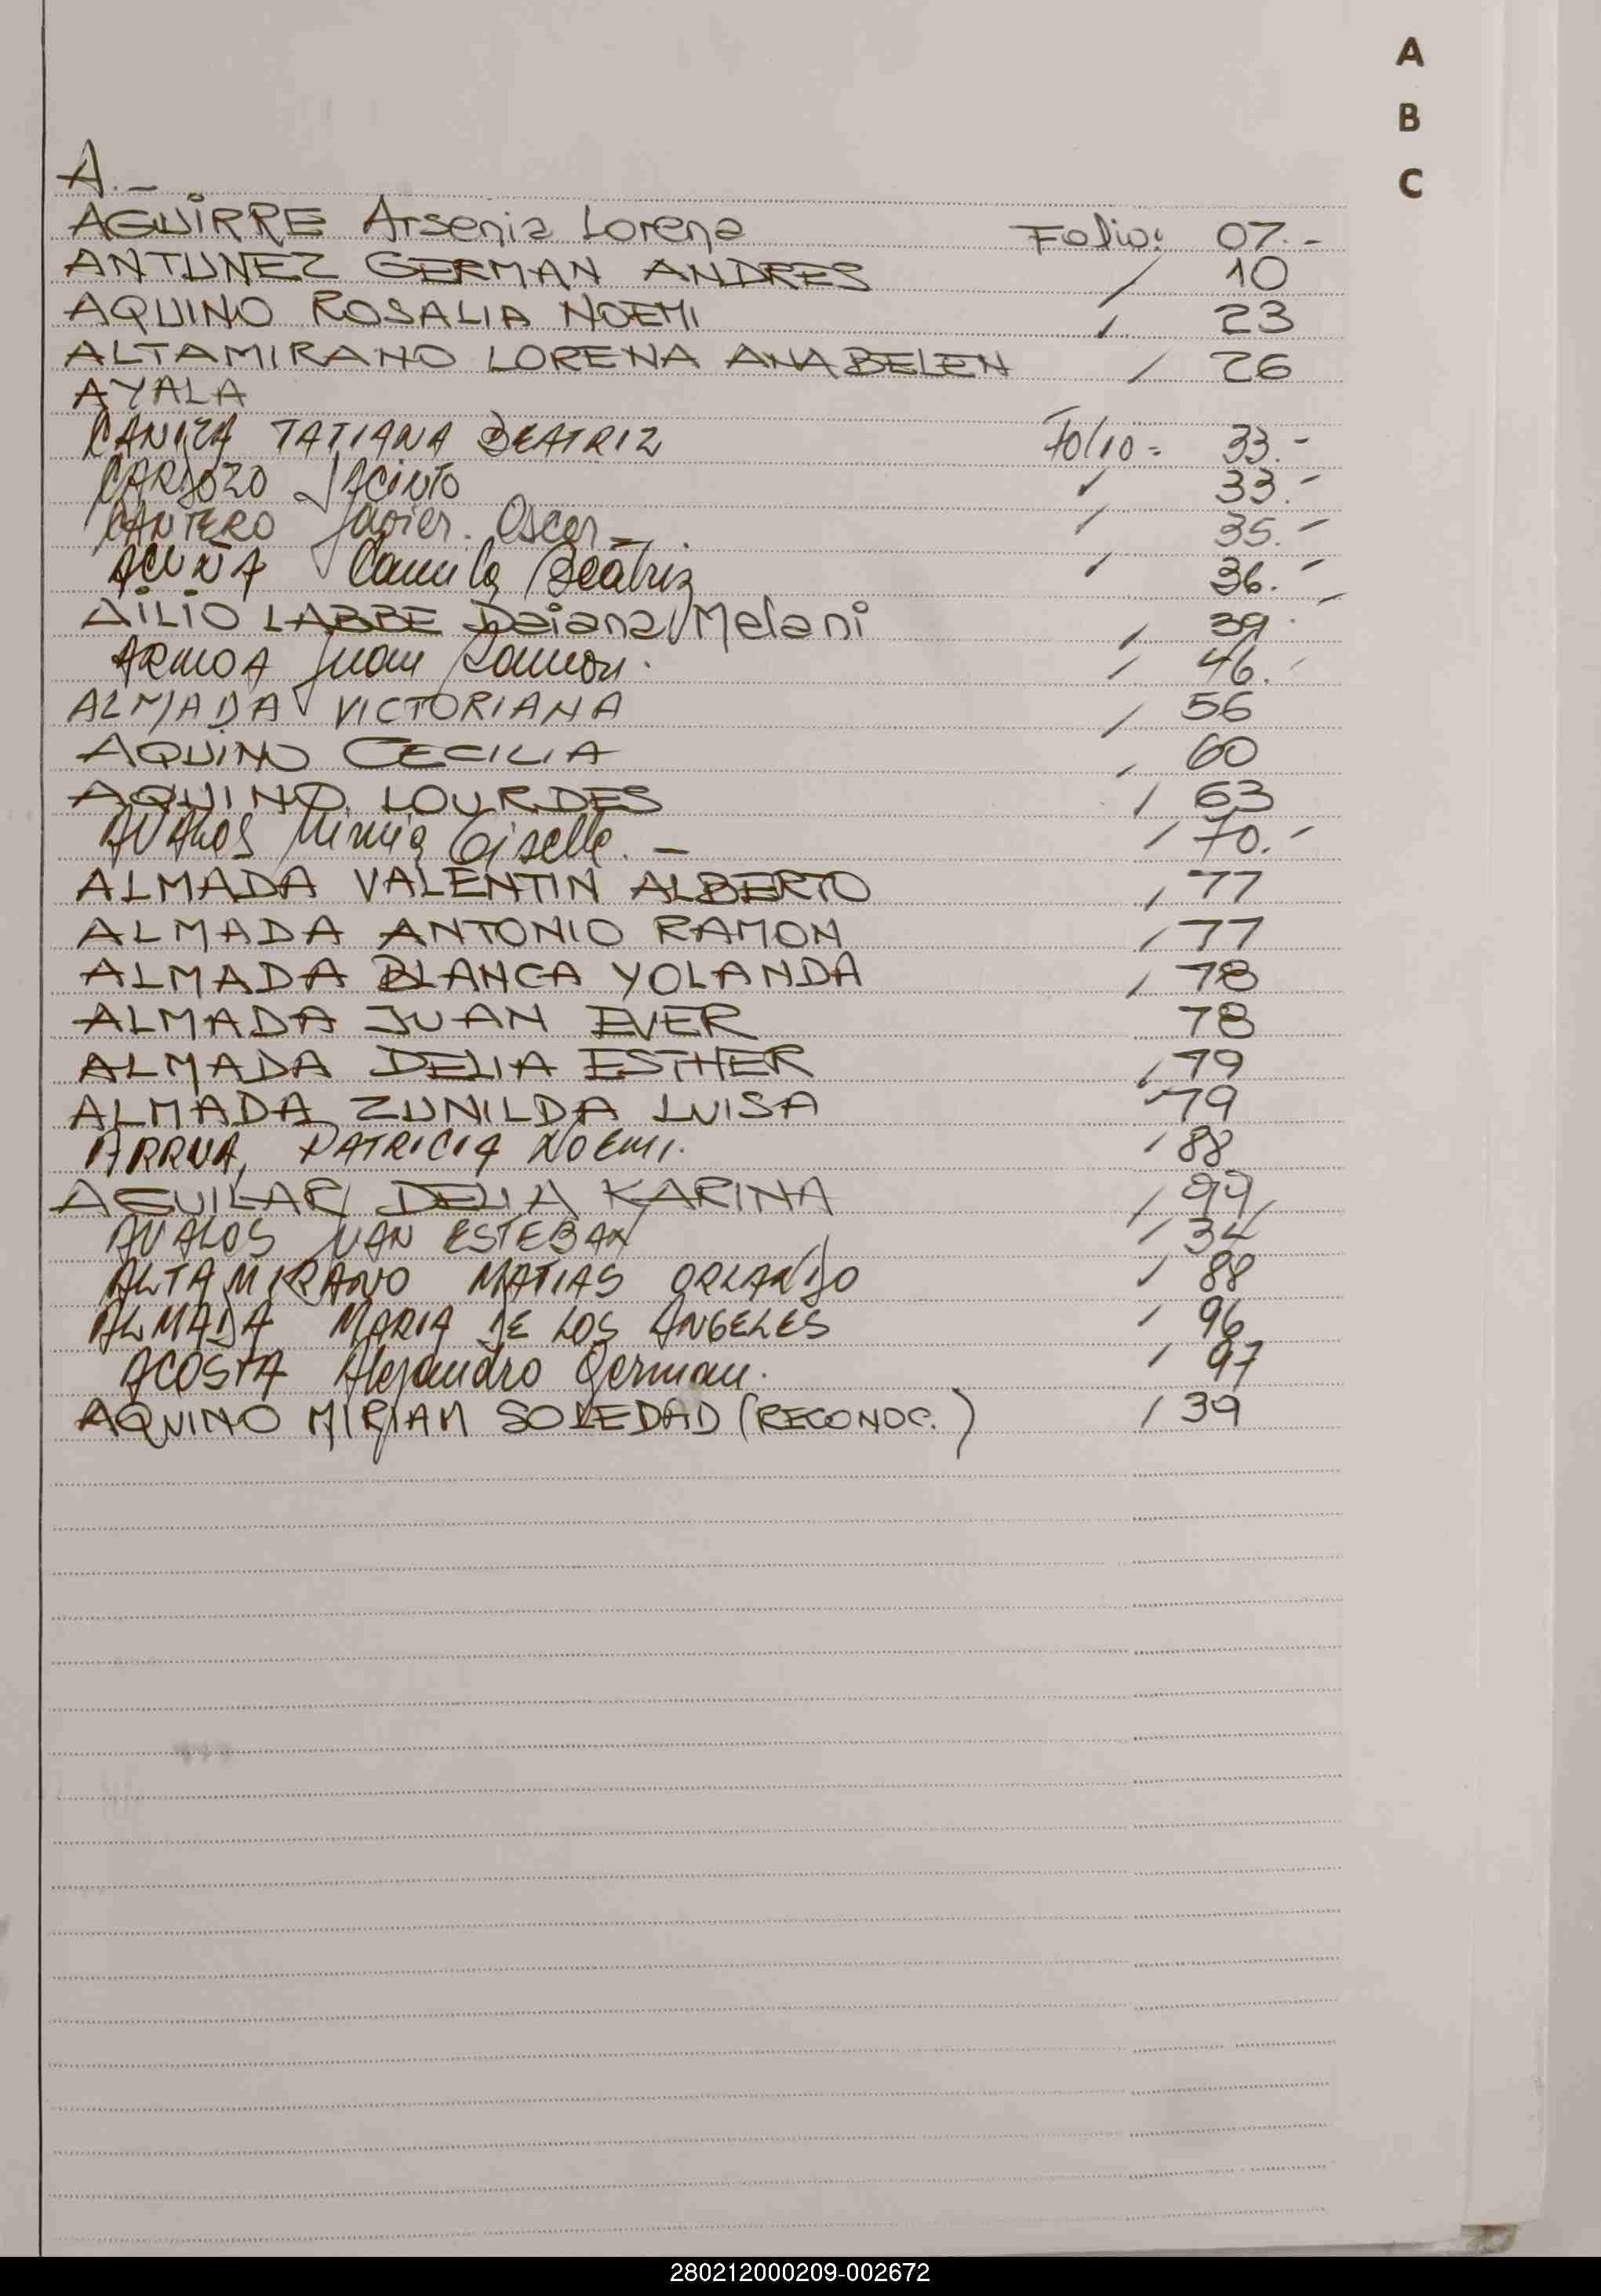 A
B
C
A.-
AGUIRRE Arsenia Lorena Folio: 07.-
ANTUNEZ GERMAN ANDRES / 10
AQUINO ROSALIA NOEMI / 23
ALTAMIRANO LORENA ANABELEN / 26
AYALA
CANIZA TATIANA BEATRIZ Folio = 33.-
CARDOZO JACINTO / 33.-
CANTERO Javier Oscar - 35.-
ACUÑA Camila Beatriz / 36.-
AILIO LABBE Daiana Melani / 39.-
ARMOA Juan Ramon. / 46.
ALMADA VICTORIANA / 56
AQUINO CECILIA / 60
AQUINO LOURDES / 63
AVALOS Mirnia Giselle.- / 70.-
ALMADA VALENTIN ALBERTO / 77
ALMADA ANTONIO RAMON / 77
ALMADA BLANCA YOLANDA / 78
ALMADA JUAN EVER 78
ALMADA DELIA ESTHER / 79
ALMADA ZUNILDA LUISA / 79
ARRUA, PATRICIA NOEMI. / 88
AGUILAR DELIA KARINA / 99
AVALOS JUAN ESTEBAN / 34
ALTAMIRANO MATIAS ORLANDO / 88
ALMADA MARIA DE LOS ANGELES / 96
ACOSTA Alejandro German. / 97
AQUINO MIRIAM SOLEDAD (RECONOC.) / 39
280212000209-002672